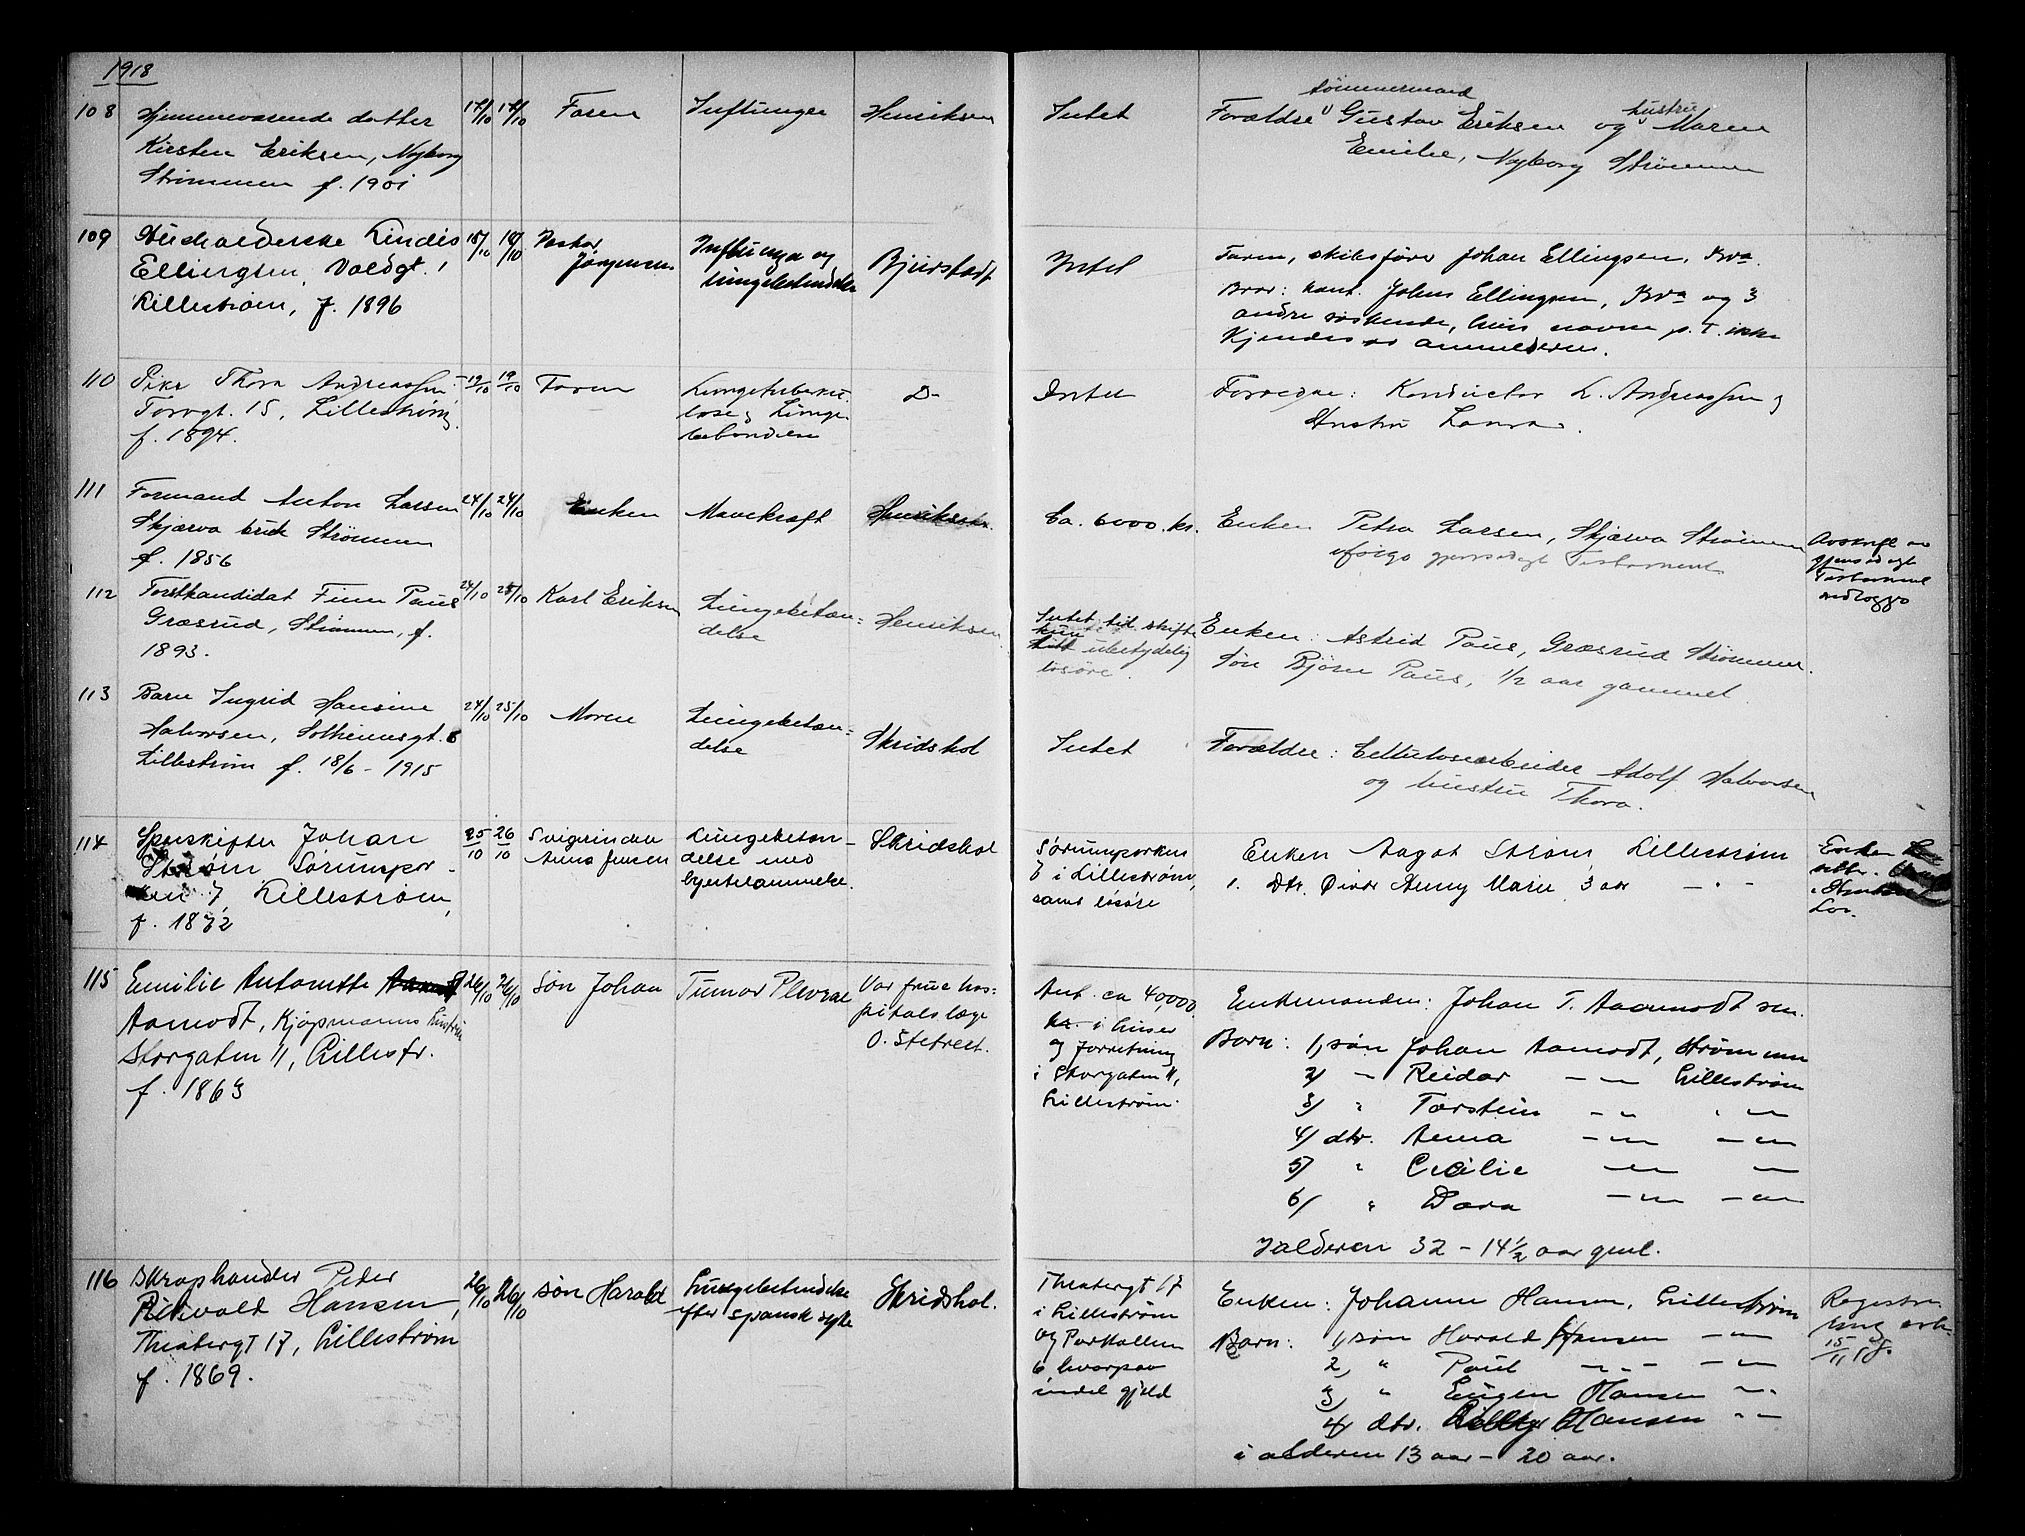 1918
108
Hjemmeværende datter
Kirsten Eriksen, Nyborg
Strømmen f. 1901
17/10 17/10
Faren
Influensa
Henriksen
Intet
tømmermand
Forældre Gustav Eriksen og hustru Maren
Emilie, Nyborg Strømmen
109
Ellingsen, Voldgt. 1
Lillestrøm, f. 1896
18/10 18/10
Pastor
Jørgensen
og
lungebetændelse
Bjerstadt
Intet
Faren, skibsfører Johan Ellingsen, Kra.
Bror: kont. Johns Ellingsen, Kra og 3
andre søskende, hvis navne p.t. ikke
kjendes av anmelderen.
110
Pike Thora Andreassen
Torvgt. 15, Lillestrøm,
f. 1894.
19/10 19/10
Faren
Lungetuberku-
lose & Lunge-
betændelse
D-
Intet
Forældre: Konduktør L. Andreassen &
Hustru Laura.
111
Formand Anton Larsen
Skjærva bruk Strømmen
f. 1856
24/10 24/10
Enken
Mavekræft
Henriksen.
Ca. 6000 kr.
Enken Petra Larsen, Skjærva Strømmen
ifølge gjensidigt Testament
Avskrift av
gjensidigt
Testament
vedlegges
112
Forstkandidat Finn Paus
Græsrud, Strømmen, f.
1893.
24/10 25/10
Karl Eriksen
Lungebetæn=
delse
Henriksen
Intet til skifte
kun
ubetydelig
løsøre.
Enken: Astrid Paus, Græsrud Strømmen.
Søn Bjørn Paus, 1/2 aar gammel.
113
Barn Ingrid Hansine
Halvorsen, Solheimsgt. 8
Lillestrøm f. 18/6 - 1915
24/10 25/10
Moren
Lungebetæn=
delse
Skridshol
Intet
Forældre: Cellulosearbeider Adolf Halvorsen
og hustru Thora.
114
Sporskifter Johan
Strøm Sørumspar-
ken 7, Lillestrøm,
f. 1872
25/10 26/10
Svigerinden
Anna Jensen
Lungebetæn-
delse med
hjertelammelse.
Skridshol
Sørumparken
7 i Lillestrøm,
samt løsøre
Enken Aagot Strøm, Lillestrøm
1. Dtr. Anny Marie 3 aar - " -
Enken
115
Emilie Antonette
Aamodt, Kjøpmanns hustru
Storgaten 11, Lillestr.
f. 1863
26/10 26/10
Søn Johan
Tumor Pleurae
Vor frue hos=
pitals læge
Ant. ca 40,000
kr. i huser
og forretning
i Storgaten 11,
Lillestrøm.
Enkemanden: Johan T. Aamodt sen.
Barn: 1, søn Johan Aamodt, Strømmen
2/ - Reidar - " - Lillestrøm
3/ " Torstein - " - " -
4/ dtr. Anna - " - - " -
5/ " Cecilie - " - -
6/ " Dora - " - - " -
I alderen 32 - 14 1/2 aar gml.
116
Skraphandler Peder
Rikvald Hansen,
Theatergt 17, Lillestrøm
f. 1869.
26/10 26/10
søn Harald
Lungebetændelse
efter spansk syke
Skridshol.
Theatergt 17
i Lillestrøm
og Parkalleen
6, hvorpaa
endel gjeld
Enken: Johanne Hansen, Lillestrøm
Barn: 1, søn Harald Hansen - " -
2, " Paul - " - - " -
3, " Eugen Hansen - " -
4, dtr. Hansen - " -
i alderen 13 aar - 20 aar.
Registre-
ring
15/11 18.